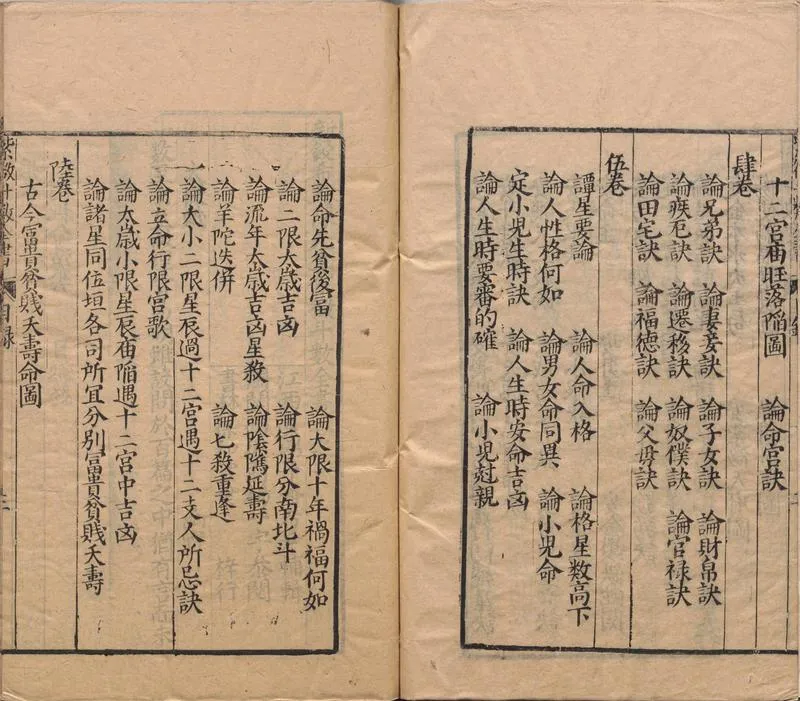 十二宮庙旺落陷圖　論命宮訣
肆卷
論兄弟訣　論妻妾訣　論子女訣　論財帛訣
論疾厄訣　論遷移訣　論奴僕訣　論官禄訣
論田宅訣　論福德訣　論父母訣
伍卷
譚星要論　論人命入格　論格星数高下
論人性格何如　論男女命同異　論小児命
定小児生時訣　論人生時安命吉凶
論人生時要審的確　論小児尅親
論命先貧後富　論大限十年禍福何如
論二限太歳吉凶　論行限分南北斗
論流年太歳吉凶星殺　論陰隲延壽
論羊陀迭併　論七殺重逢
論大小二限星辰過十二宮遇十二支人所忌訣
論立命行限宮歌
論太歳小限星辰庙陷遇十二宮中吉凶
論諸星同位垣各司所宜分別富貴貧賤夭壽
陸卷
古今富貴貧賤夭壽命圖
紫微斗数全書　目録